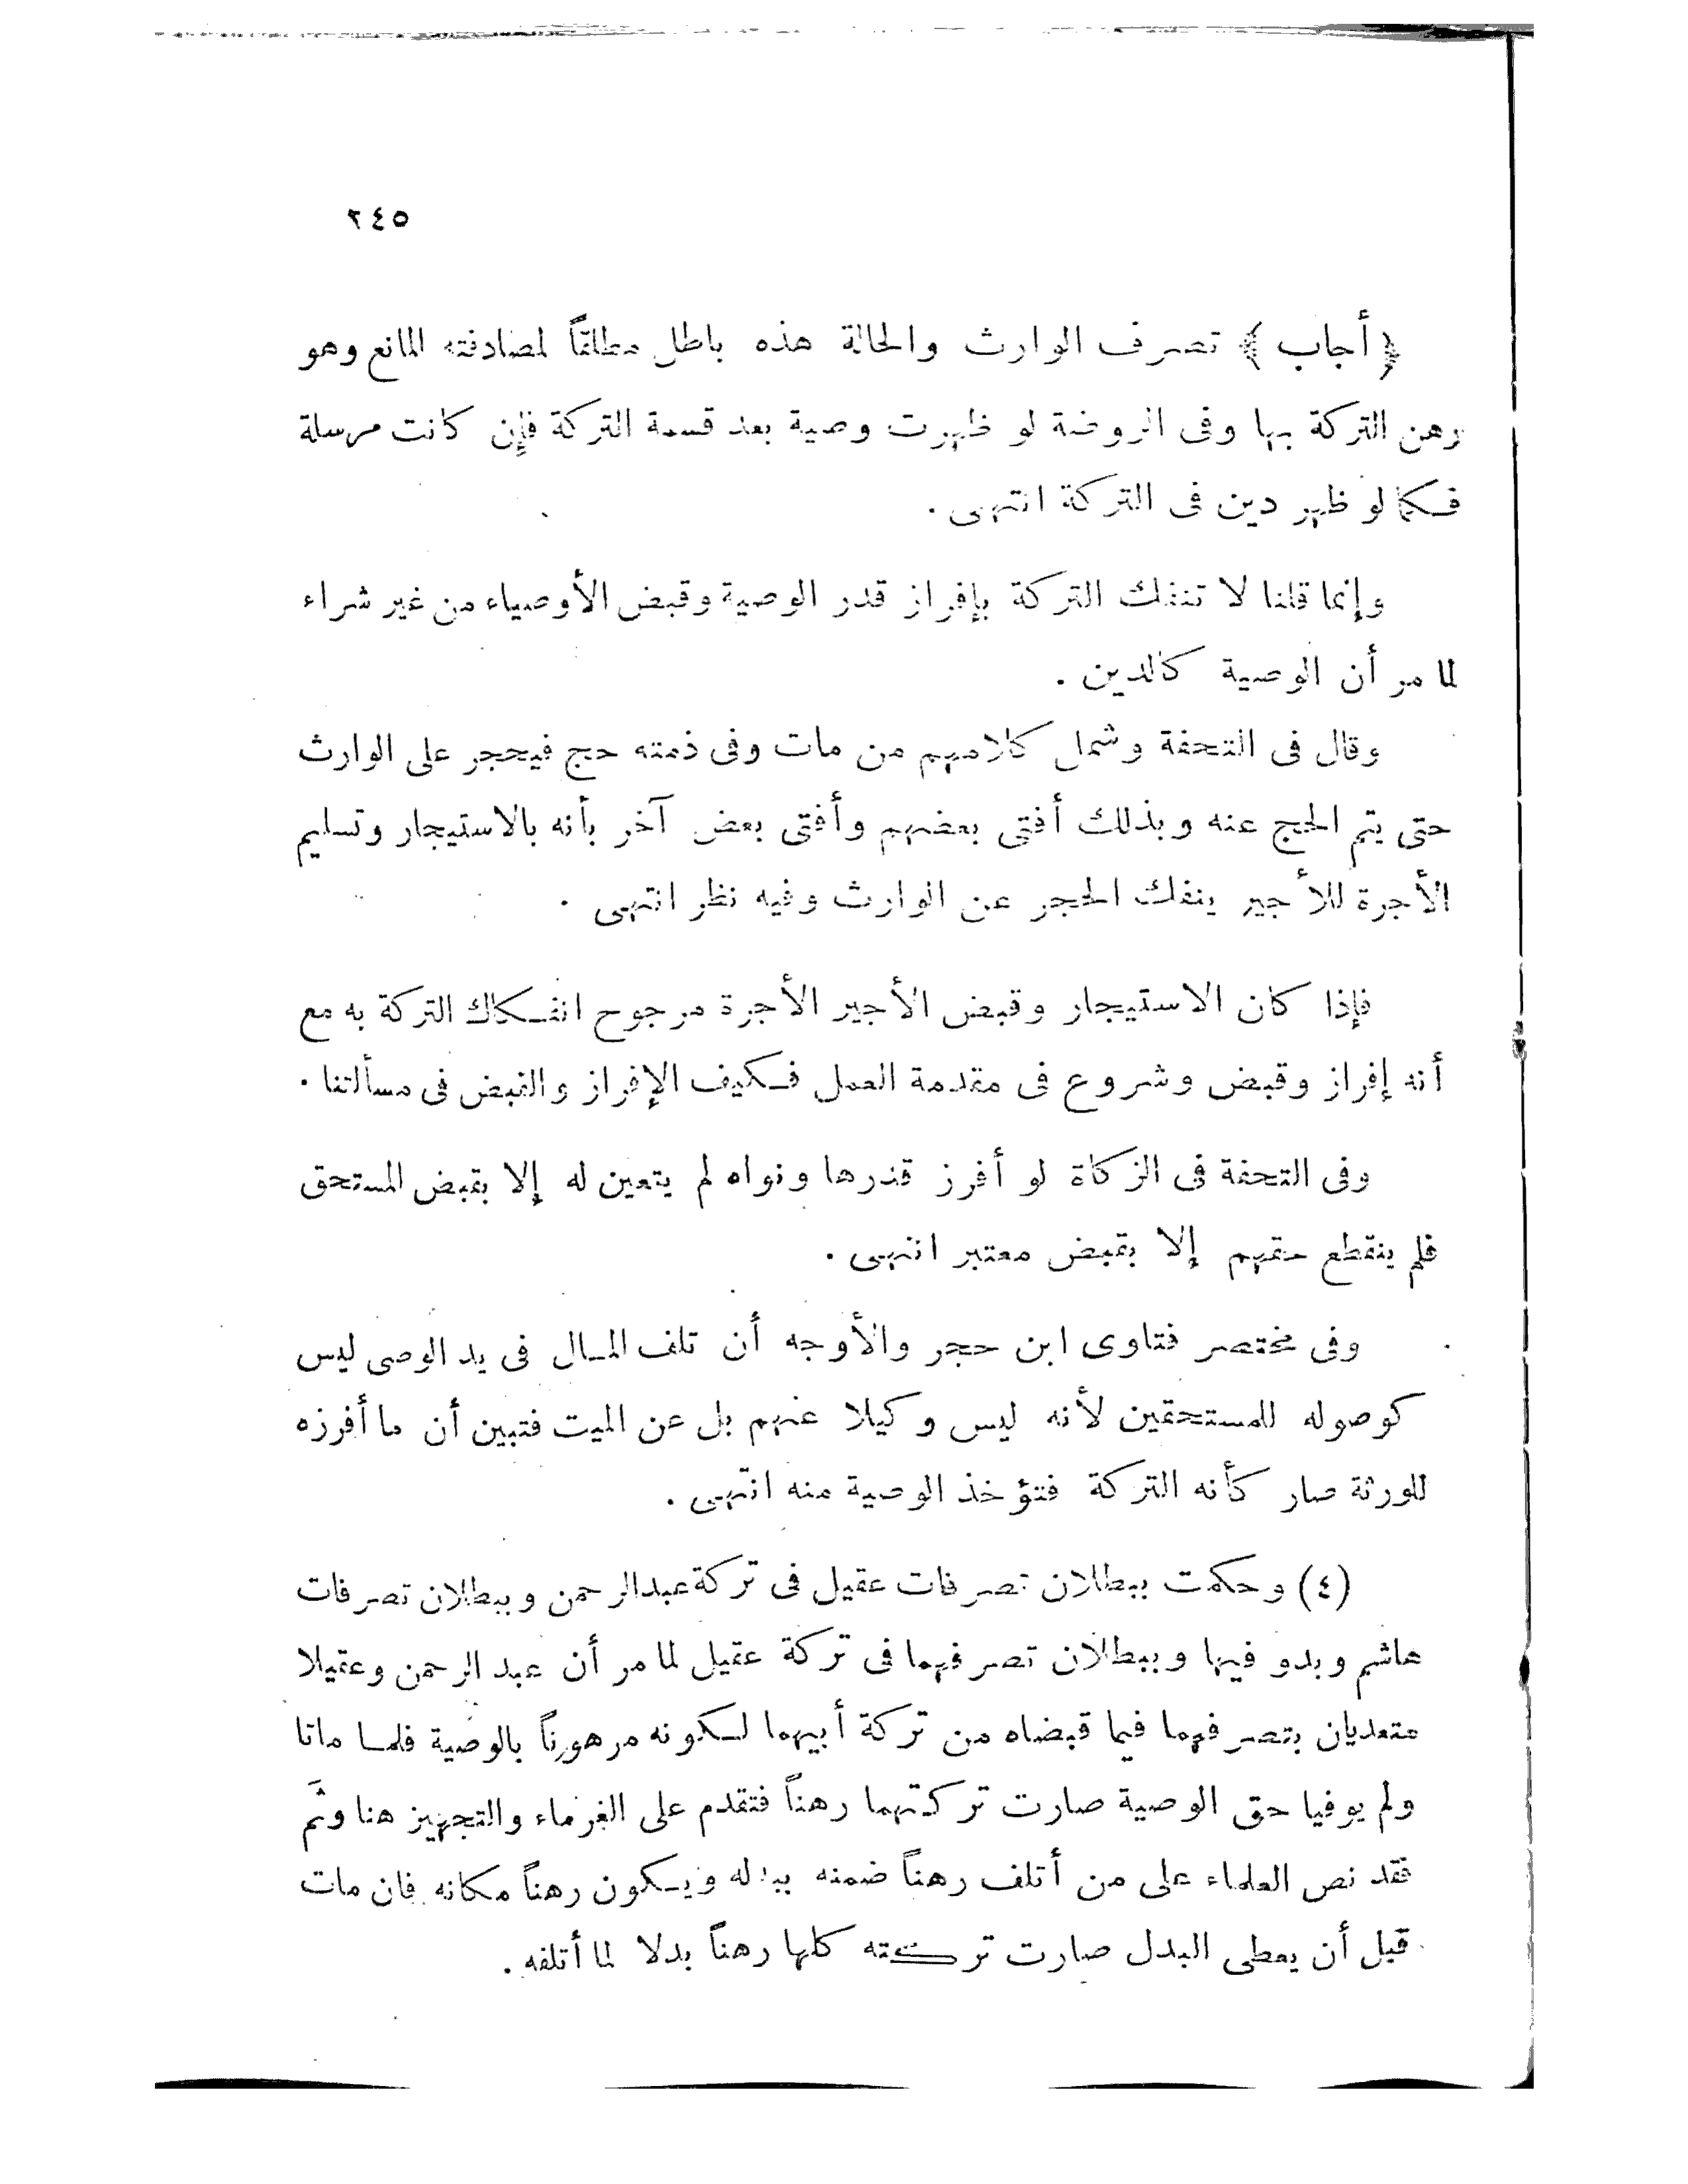 ٢٤٥
﴿ أجاب ﴾ تصرف الوارث والحالة هذه باطل مطلقاً لمصادفته المانع وهو
رهن التركة بها وفى الروضة لو ظهرت وصية بعد قسمة التركة فإن كانت مرسلة
فكما لو ظهر دين فى التركة انتهى .
وإنما قلنا لا تنفك التركة بإفراز قدر الوصية وقبض الأوصياء من غير شراء
لما مر أن الوصية كالدين .
وقال فى التحفة وشمل كلامهم من مات وفى ذمته حج فيحجر على الوارث
حتى يتم الحج عنه وبذلك أفتى بعضهم وأفتى بعض آخر بأنه بالاستيجار وتسليم
الأجرة للأجير ينفك الحجر عن الوارث وفيه نظر انتهى .
فإذا كان الاستيجار وقبض الأجير الأجرة مرجوح انفكاك التركة به مع
أنه إفراز وقبض وشروع فى مقدمة العمل فكيف الإفراز والقبض فى مسألتنا .
وفى التحفة فى الزكاة لو أفرز قدرها ونواه لم يتعين له إلا بقبض المستحق
فلم ينقطع حقهم إلا بقبض معتبر انتهى .
وفى مختصر فتاوى ابن حجر والأوجه أن تلف المال فى يد الوصى ليس
كوصوله للمستحقين لأنه ليس وكيلا عنهم بل عن الميت فتبين أن ما أفرزه
للورثة صار كأنه التركة فتؤخذ الوصية منه انتهى .
(٤) وحكمت ببطلان تصرفات عقيل فى تركة عبدالرحمن وببطلان تصرفات
هاشم وبدو فيها وببطلان تصرفهما فى تركة عقيل لما مر أن عبد الرحمن وعقيلا
متعديان بتصرفهما فيما قبضاه من تركة أبيهما لكونه مرهوناً بالوصية فلما ماتا
ولم يوفيا حق الوصية صارت تركتهما رهناً فتقدم على الغرماء والتجهيز هنا وثَم
فقد نص العلماء على من أتلف رهناً ضمنه ببدله ويكون رهناً مكانه فان مات
قبل أن يعطى البدل صارت تركته كلها رهناً بدلا لما أتلفه .